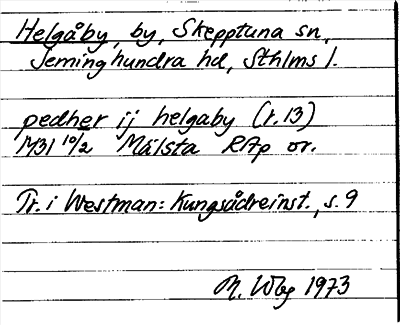 Helgåby, by, Skepptuna sn,
Seminghundra hd, Sthlms l.
pedher ij helgaby (r. 13)
1431 10/2 Målsta RAp or.
Tr. i Westman: Kungsådreinst., s. 9
M. Wbg 1973